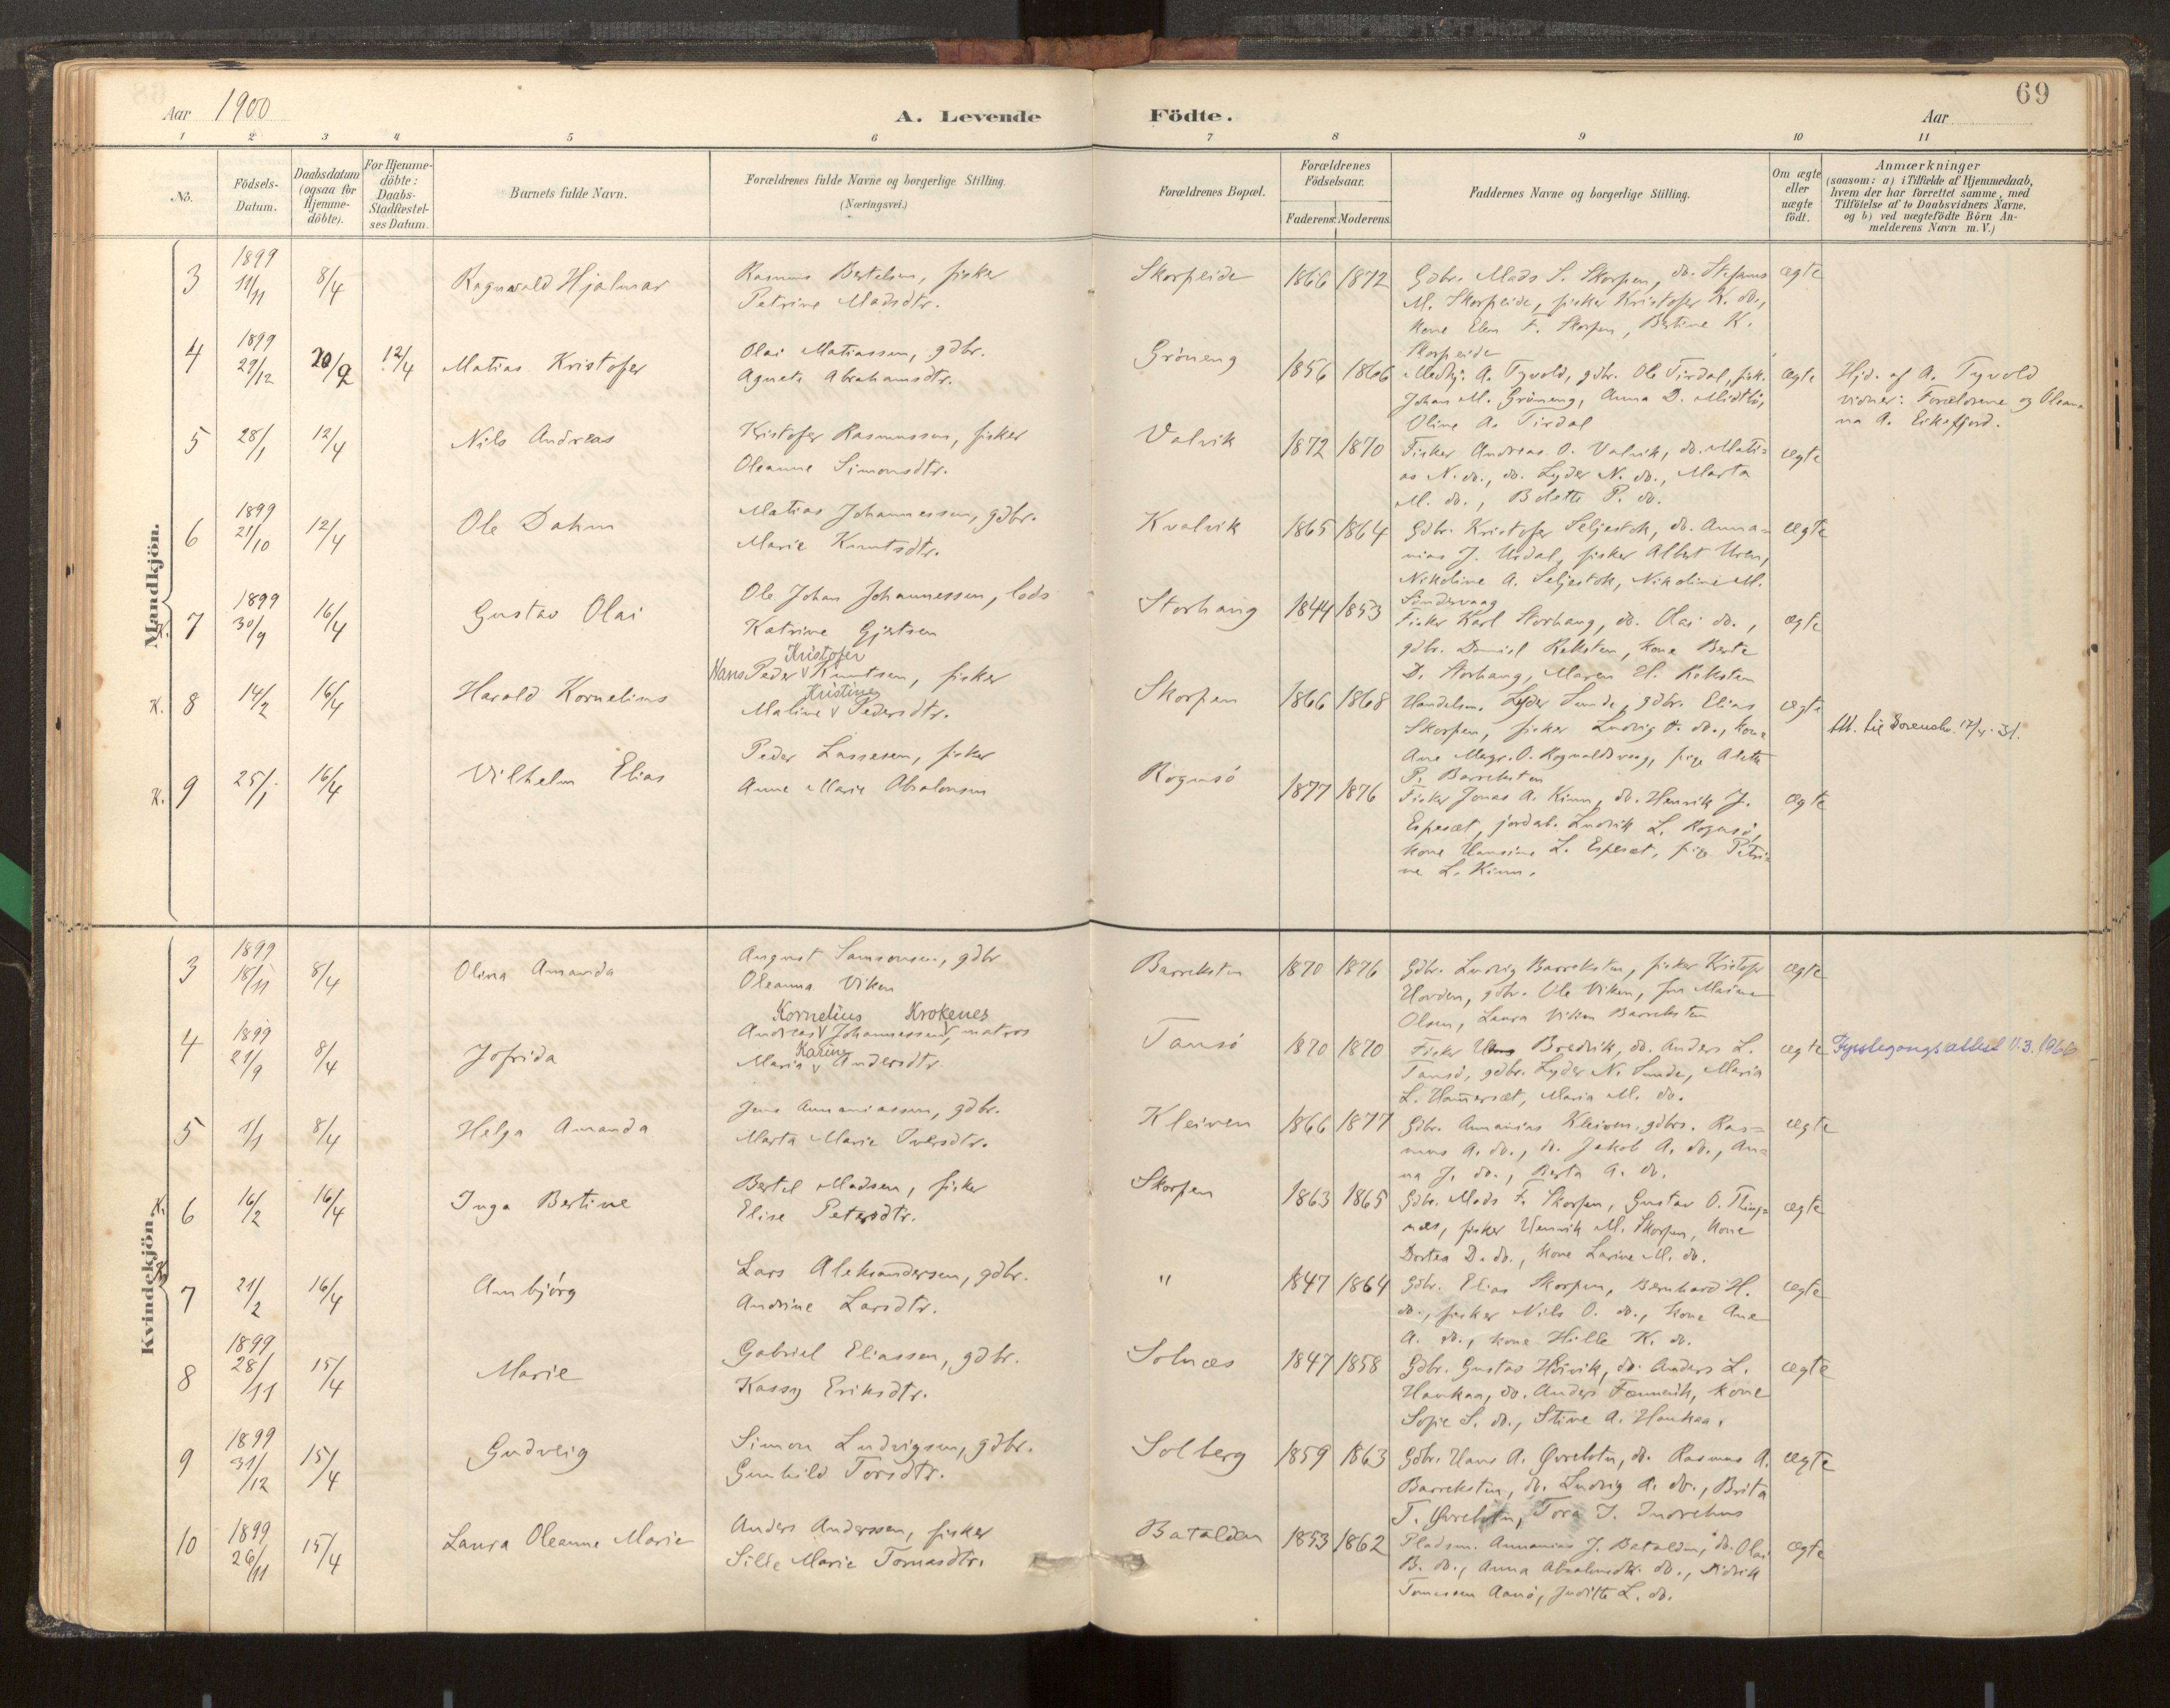 69
Aar 1900
A. Levende Födte.
Aar
1 2 3 4 5 6 7 8 9 10 11
No.
Födsels-
Datum.
Daabsdatum
(ogsaa for
Hjemme-
döbte).
For Hjemme-
döbte:
Daabs-
Stadfæstel-
ses Datum.
Barnets fulde Navn.
Forældrenes fulde Navne og borgerlige Stilling.
(Næringsvei.)
Forældrenes Bopæl.
Forældrenes
Födselsaar.
Faderens. Moderens.
Faddernes Navne og borgerlige Stilling.
Om ægte
eller
uægte
födt.
Anmærkninger
(saasom: a) i Tilfælde af Hjemmedaab,
hvem der har forrettet samme, med
Tilföielse af to Daabsvidners Navne.
og b) ved uægtefödte Börn An-
melderens Navn m. V.)
Mandkjön.
3 1899 11/11 8/4 Ragnvald Hjalmar
Rasmus Bertelsen, fisker
Petrine Madsdtr.
Skorpeide 1866 1872
Gdbr. Mads S. Skorpen, do. Stefanus
M. Skorpeide, fisker Kristofer K. do.,
kone Elen F. Skorpen, Bertine K.
Skorpeide
ægte
4 1899 29/12 20/2 12/4 Matias Kristofer
Olai Matiassen, gdbr.
Agnete Abrahamsdtr.
Gröneng 1856 1866
Medhj. A. Tyvold, gdbr. Ole Tirdal, fisk.
Johan M. Gröneng, Anna D. Midtbö,
Oline A. Tirdal
ægte
Hjd. af A. Tyvold
vidner: Forældrene og Olean-
na A. Eiksfjord.
5 28/1 12/4 Nils Andreas
Kristofer Rasmussen, fisker
Oleanne Simonsdtr.
Valvik 1872 1870
Fisker Andreas O. Valvik, do. Mati-
as N. do., do. Lyder N. do., Marta
M. do., Bolette P. do.
ægte
6 1899 21/10 12/4 Ole Dahm
Matias Johannessen, gdbr.
Marie Knutsdtr.
Kvalvik 1865 1864
Gdbr. Kristofer Seljestok, do. Anna-
nias J. Urdal, fisker Albert Uren,
Nikoline A. Seljestok, Nikoline M.
Söndervaag
ægte
K. 7 1899 30/9 16/4 Gustav Olai
Ole Johan Johannessen, lods
Katrine Gjertsen
Storhaug 1844 1853
Fisker Karl Storhaug, do. Olai do.,
gdbr. Daniel Reksten, kone Berte
D. Storhaug, Maren H. Reksten
ægte
K. 8 14/2 16/4 Harald Kornelius
Kristofer
Hans Peder Knutsen, fisker
Kristine
Maline Pedersdtr.
Skorpen 1866 1868
Handelsm. Lyder Sunde, gdbr. Elias
Skorpen, fisker Ludvig O. do., kone
Ane Magr. O. Rognaldsvaag, pige Alette
P. Barreksten
ægte
17/4-31.
K. 9 25/1 16/4 Vilhelm Elias
Peder Lassesen, fisker
Anne Marie Absalonsen
Rognsö 1877 1876
Fisker Jonas A. Kinn, do. Henrik J.
Espeset, jordab. Ludvik L. Rognsö,
kone Hansine L. Espeset, pige Petri-
ne L. Kinn.
ægte
Kvindekjön.
3 1899 18/11 8/4 Olina Amanda
August Samsonsen, gdbr
Oleanna Viken
Barreksten 1870 1876
Gdbr. Ludvig Barreksten, fisker Kristofer
Hovden, gdbr. Ole Viken, fru
Olsen, Laura Viken Barreksten
ægte
4 1899 21/9 8/4 Jofrida
Kornelius Krokenes
Andreas Johannessen, matros
Karine
Maria Andersdtr.
Tansö 1870 1870
Fisker Bredvik, do. Anders L.
Tansö, gdbr. Lyder N. Sunde, Maria
L. Hammersæt, Maria M. do.
ægte
Fyrstegongsattest 11.3.1966
5 1/1 8/4 Helga Amanda
Jens Annaniassen, gdbr.
Marta Marie Iversdtr.
Kleiven 1866 1877
Gdbr. Annanias Kleiven, gdbrs. Ras-
mus A. do., do. Jakob A. do., An-
na J. do., Berta A. do.
ægte
K. 6 16/2 16/4 Inga Bertine
Bertel Madsen, fisker
Elise Petersdtr.
Skorpen 1863 1865
Gdbr. Mads F. Skorpen, Gustav O. Thing-
næs, fisker Henrik M. Skorpen, kone
Dortea D. do., kone Larine M. do.
ægte
K. 7 21/2 16/4 Annbjörg
Lars Aleksandersen, gdbr.
Andrine Larsdtr.
" 1847 1864
Gdbr. Elias Skorpen, Bernhard H.
do., fisker Nils O. do., kone Ane
A. do., kone Hille K. do.
ægte
8 1899 28/11 15/4 Marie
Gabriel Eliassen, gdbr.
Kassy Eriksdtr.
Solnæs 1847 1858
Gdbr. Gustav Höivik, do. Anders L.
Haukaa, do. Anders Fannevik, kone
Sofie S. do., Stine A. Haukaa.
ægte
9 1899 31/12 15/4 Gudveig
Simon Ludvigsen, gdbr.
Gunhild Torsdtr.
Solberg 1859 1863
Gdbr. Hans A. Øvrebotn, do. Rasmus A.
Barreksten, do. Ludvig A. do., Brita
T. Øvrebotn, Tora J. Indrehus
ægte
10 1899 26/11 15/4 Laura Oleanne Marie
Anders Anderssen, fisker
Sille Marie Tomasdtr.
Batalden 1853 1862
Pladsm. Annanias J. Batalden, do. Olai
B. do., Anna Absalonsdtr. do., Didrik
Tomassen Aanö, Judithe L. do.
ægte